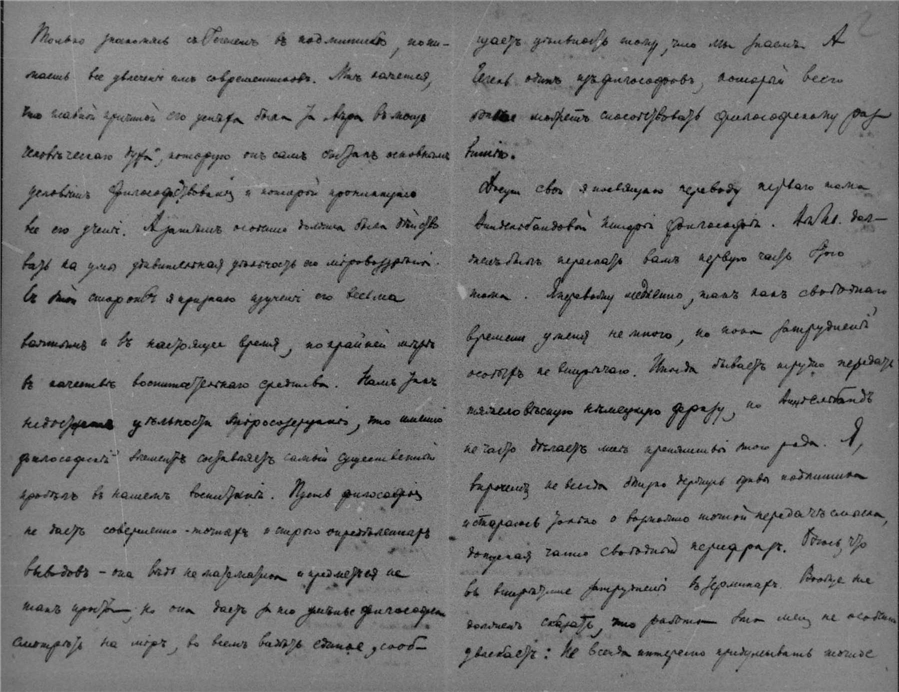 Только знакомясь съ Гегелемъ въ подлинникѣ, пони-
маешь все увлеченіе имъ современниковъ. Мнѣ кажется,
что главной причиной его успѣха была эта вѣра въ мощь
человѣческаго духа, которую онъ самъ считалъ основнымъ
условіемъ философствованія и которой проникнуто
все его ученіе. А затѣмъ особенно должна была дѣйство
вать на умы удивительная цѣльность его міровоззрѣнія.
Съ этой стороны я признаю изученіе его весьма
важнымъ и въ настоящее время, по крайней мѣрѣ
въ качествѣ воспитательнаго средства. Намъ такъ
недостаетъ цѣльности міросозерцанія, что именно
философскій элементъ составляетъ самый существенный
пробѣлъ въ нашемъ воспитаніи. Пусть философія
не даетъ совершенно-точныхъ и строго опредѣленныхъ
выводовъ – она вѣдь не математика и предметъ ея не
такъ простъ, но она даетъ за то умѣнье философски
смотрѣть на міръ, во всемъ видѣть единое, сооб-
щаетъ цѣльность тому, что мы знаемъ. А
Гегель одинъ изъ философовъ, который всего
болѣе можетъ способствовать философскому раз
витію.
Досугъ свой я посвящаю переводу перваго тома
Виндельбандовой Исторіи философіи.
переслать вамъ первую часть этого
тома. Я перевожу медленно, такъ какъ свободнаго
времени у меня не много, но пока затрудненій
особыхъ не встрѣчаю. Иногда бываетъ трудно передать
тяжеловѣсную нѣмецкую фразу, но Виндельбандъ
не часто дѣлаетъ мнѣ препятствія этого рода. Я,
впрочемъ не всегда строго держусь буквы подлинника
и стараюсь только о возможно точной передачѣ смысла,
допуская часто свободный перифразъ. Боюсь, что
затрудненія въ терминахъ. Вообще же
долженъ сказать, что работа эта меня не особенно
увлекаетъ: Не всегда интересно придумывать точное